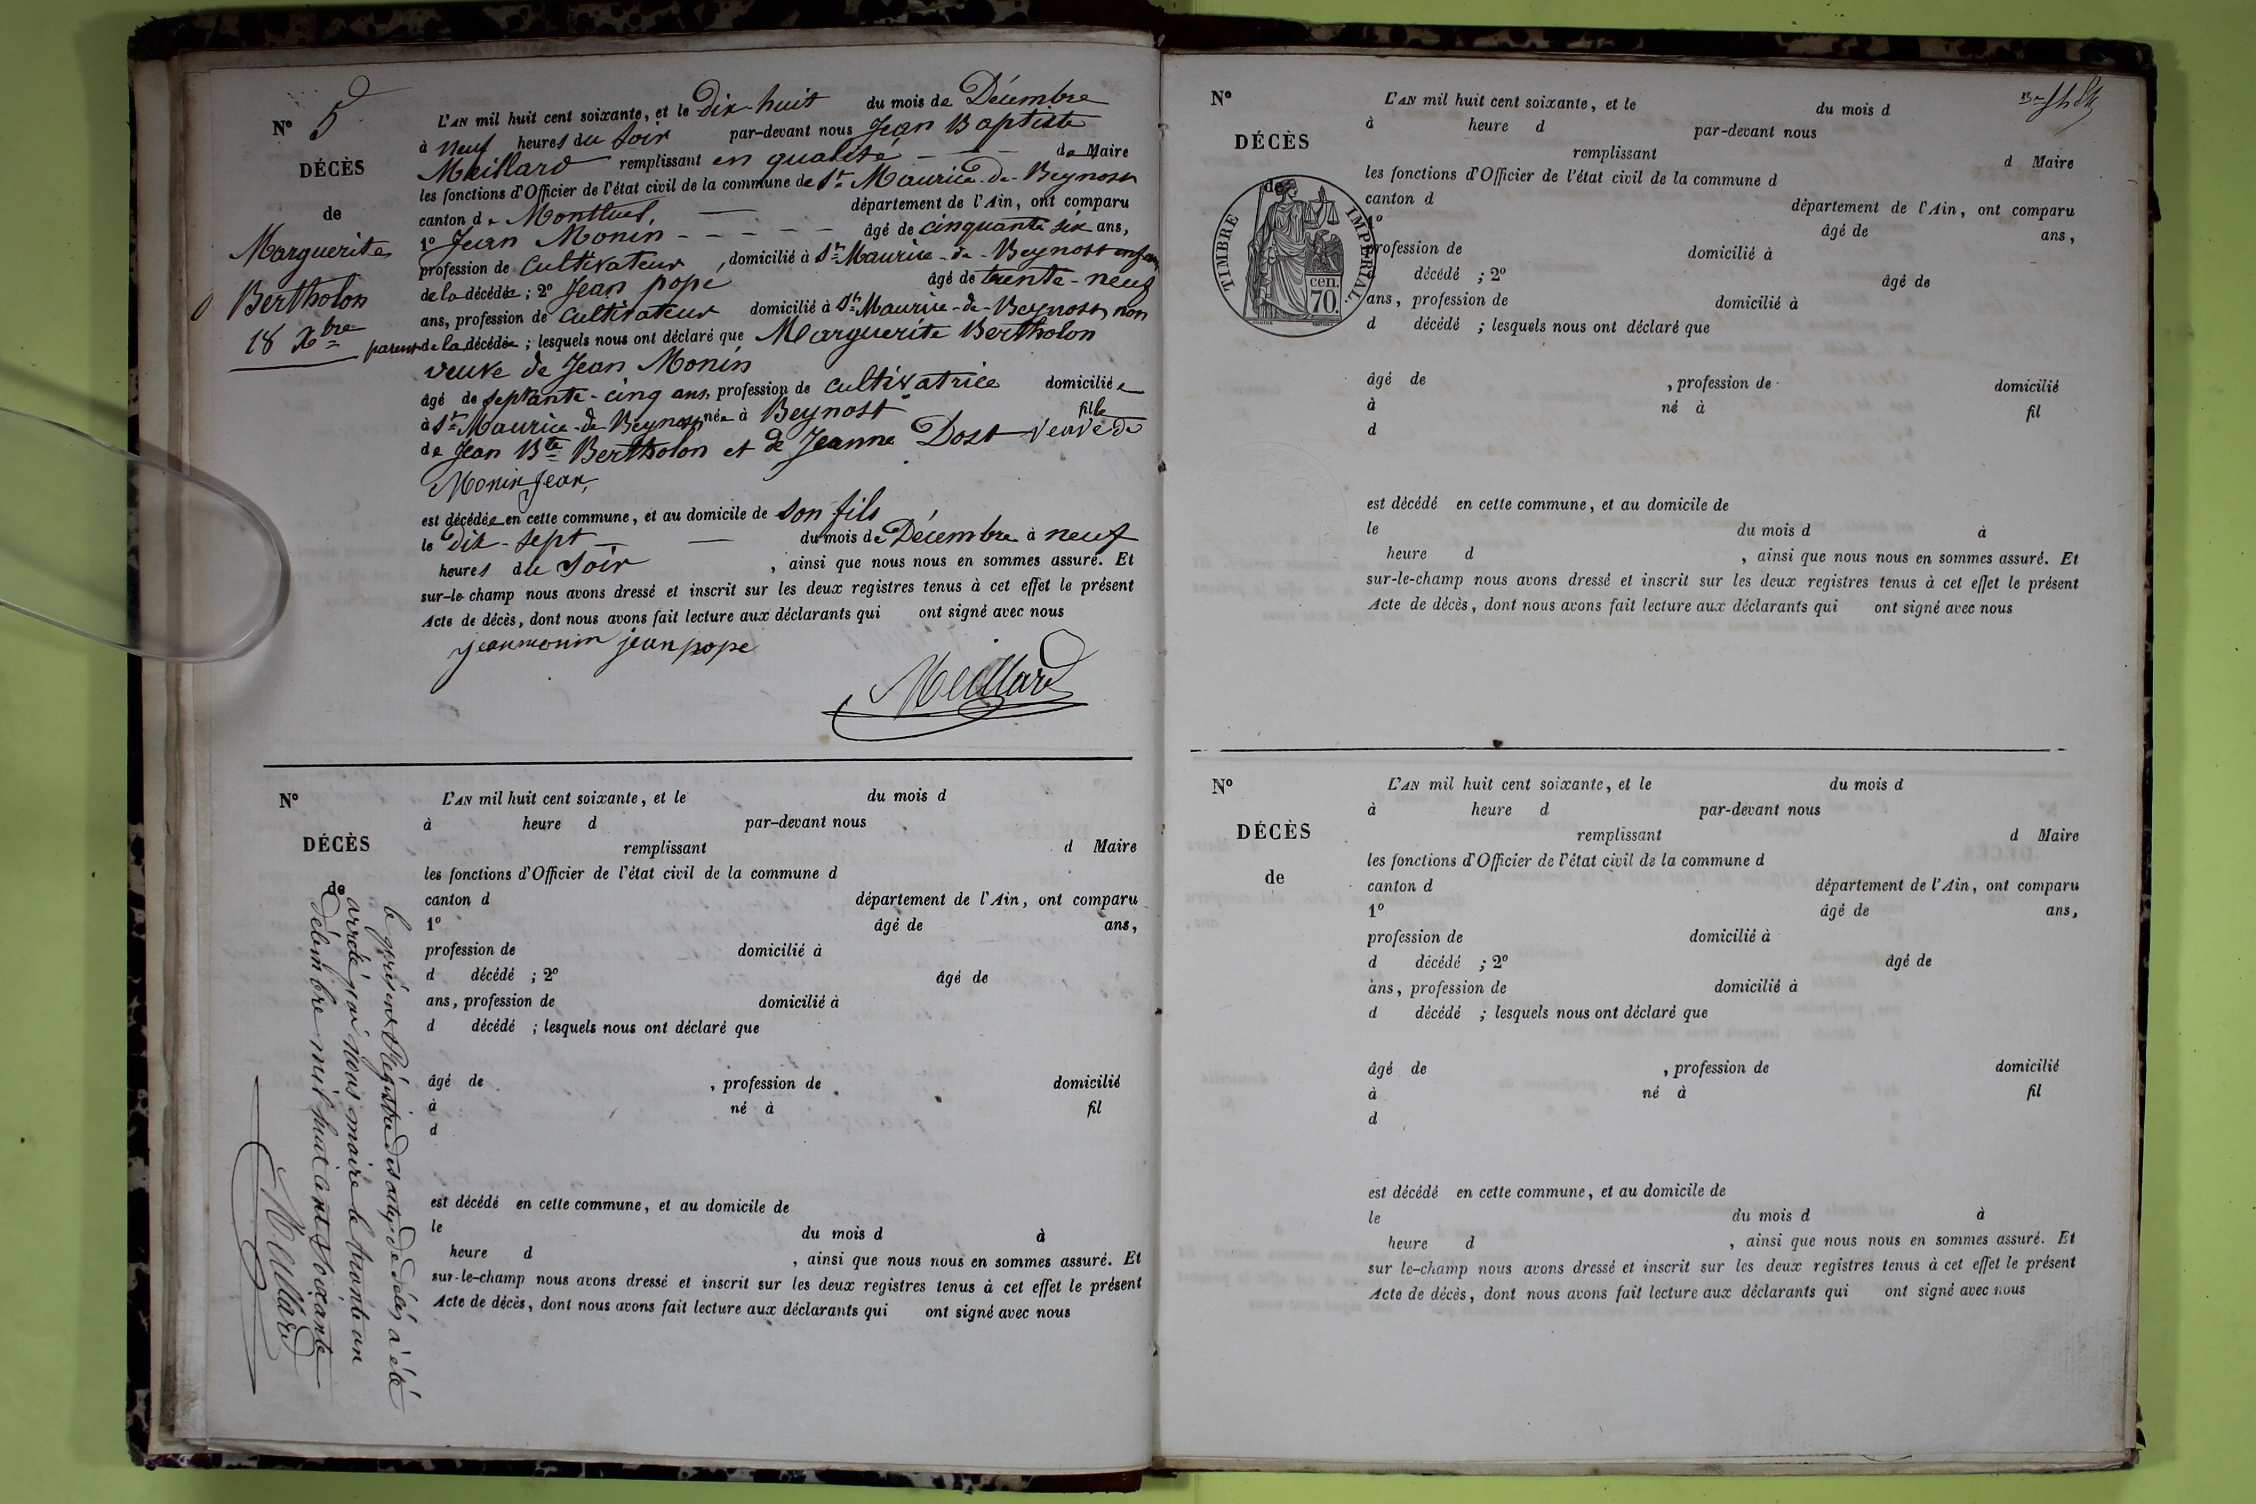 Nº 5
DÉCÈS
de
Marguerite
Bertholon
18 Xbre
L'AN mil huit cent soixante, et le dix-huit du mois de Décembre
à neuf heures du soir par-devant nous Jean Baptiste
Meillard remplissant en qualité de Maire
les fonctions d'Officier de l'état civil de la commune de St Maurice-de-Beynost
canton de Montluel, département de l'Ain, ont comparu
1º Jean Monin âgé de cinquante six ans,
profession de cultivateur, domicilié à St Maurice-de-Beynost enfant
de la décédée ; 2º Jean popé âgé de trente-neuf
ans, profession de cultivateur domicilié à St Maurice-de-Beynost non
parent de la décédée ; lesquels nous ont déclaré que Marguerite Bertholon
veuve de Jean Monin
âgé de septante-cinq ans, profession de cultivatrice domiciliée
à St Maurice-de-Beynost née à Beynost fille
de Jean Bte Bertholon et de Jeanne Dost veuve de
Monin Jean,
est décédée en cette commune, et au domicile de son fils
le dix-sept du mois de Décembre à neuf
heures du soir, ainsi que nous nous en sommes assuré. Et
sur-le-champ nous avons dressé et inscrit sur les deux registres tenus à cet effet le présent
Acte de décès, dont nous avons fait lecture aux déclarants qui ont signé avec nous
jean monin jean pope
Meillard
Nº
DÉCÈS
de
L'AN mil huit cent soixante, et le du mois d
à heure d par-devant nous
remplissant d Maire
les fonctions d'Officier de l'état civil de la commune d
canton d département de l'Ain, ont comparu
1º âgé de ans,
profession de domicilié à
d décédé ; 2º âgé de
ans, profession de domicilié à
d décédé ; lesquels nous ont déclaré que
âgé de , profession de domicilié
à né à fil
d
est décédé en cette commune, et au domicile de
le du mois d à
heure d , ainsi que nous nous en sommes assuré. Et
sur-le-champ nous avons dressé et inscrit sur les deux registres tenus à cet effet le présent
Acte de décès, dont nous avons fait lecture aux déclarants qui ont signé avec nous
le présent Régistre des actes de décès a été
arrêté par nous maire le trente un
décembre mil huit cent soixante
Meillard
Nº
DÉCÈS
de
TIMBRE IMPÉRIAL.
70 cen.
L'AN mil huit cent soixante, et le du mois d
à heure d par-devant nous
remplissant d Maire
les fonctions d'Officier de l'état civil de la commune d
canton d département de l'Ain, ont comparu
1º âgé de ans,
profession de domicilié à
décédé ; 2º âgé de
ans, profession de domicilié à
d décédé ; lesquels nous ont déclaré que
âgé de , profession de domicilié
à né à fil
d
est décédé en cette commune, et au domicile de
le du mois d à
heure d , ainsi que nous nous en sommes assuré. Et
sur-le-champ nous avons dressé et inscrit sur les deux registres tenus à cet effet le présent
Acte de décès, dont nous avons fait lecture aux déclarants qui ont signé avec nous
Nº
DÉCÈS
de
L'AN mil huit cent soixante, et le du mois d
à heure d par-devant nous
remplissant d Maire
les fonctions d'Officier de l'état civil de la commune d
canton d département de l'Ain, ont comparu
1º âgé de ans,
profession de domicilié à
d décédé ; 2º âgé de
ans, profession de domicilié à
d décédé ; lesquels nous ont déclaré que
âgé de , profession de domicilié
à né à fil
d
est décédé en cette commune, et au domicile de
le du mois d à
heure d , ainsi que nous nous en sommes assuré. Et
sur le-champ nous avons dressé et inscrit sur les deux registres tenus à cet effet le présent
Acte de décès, dont nous avons fait lecture aux déclarants qui ont signé avec nous